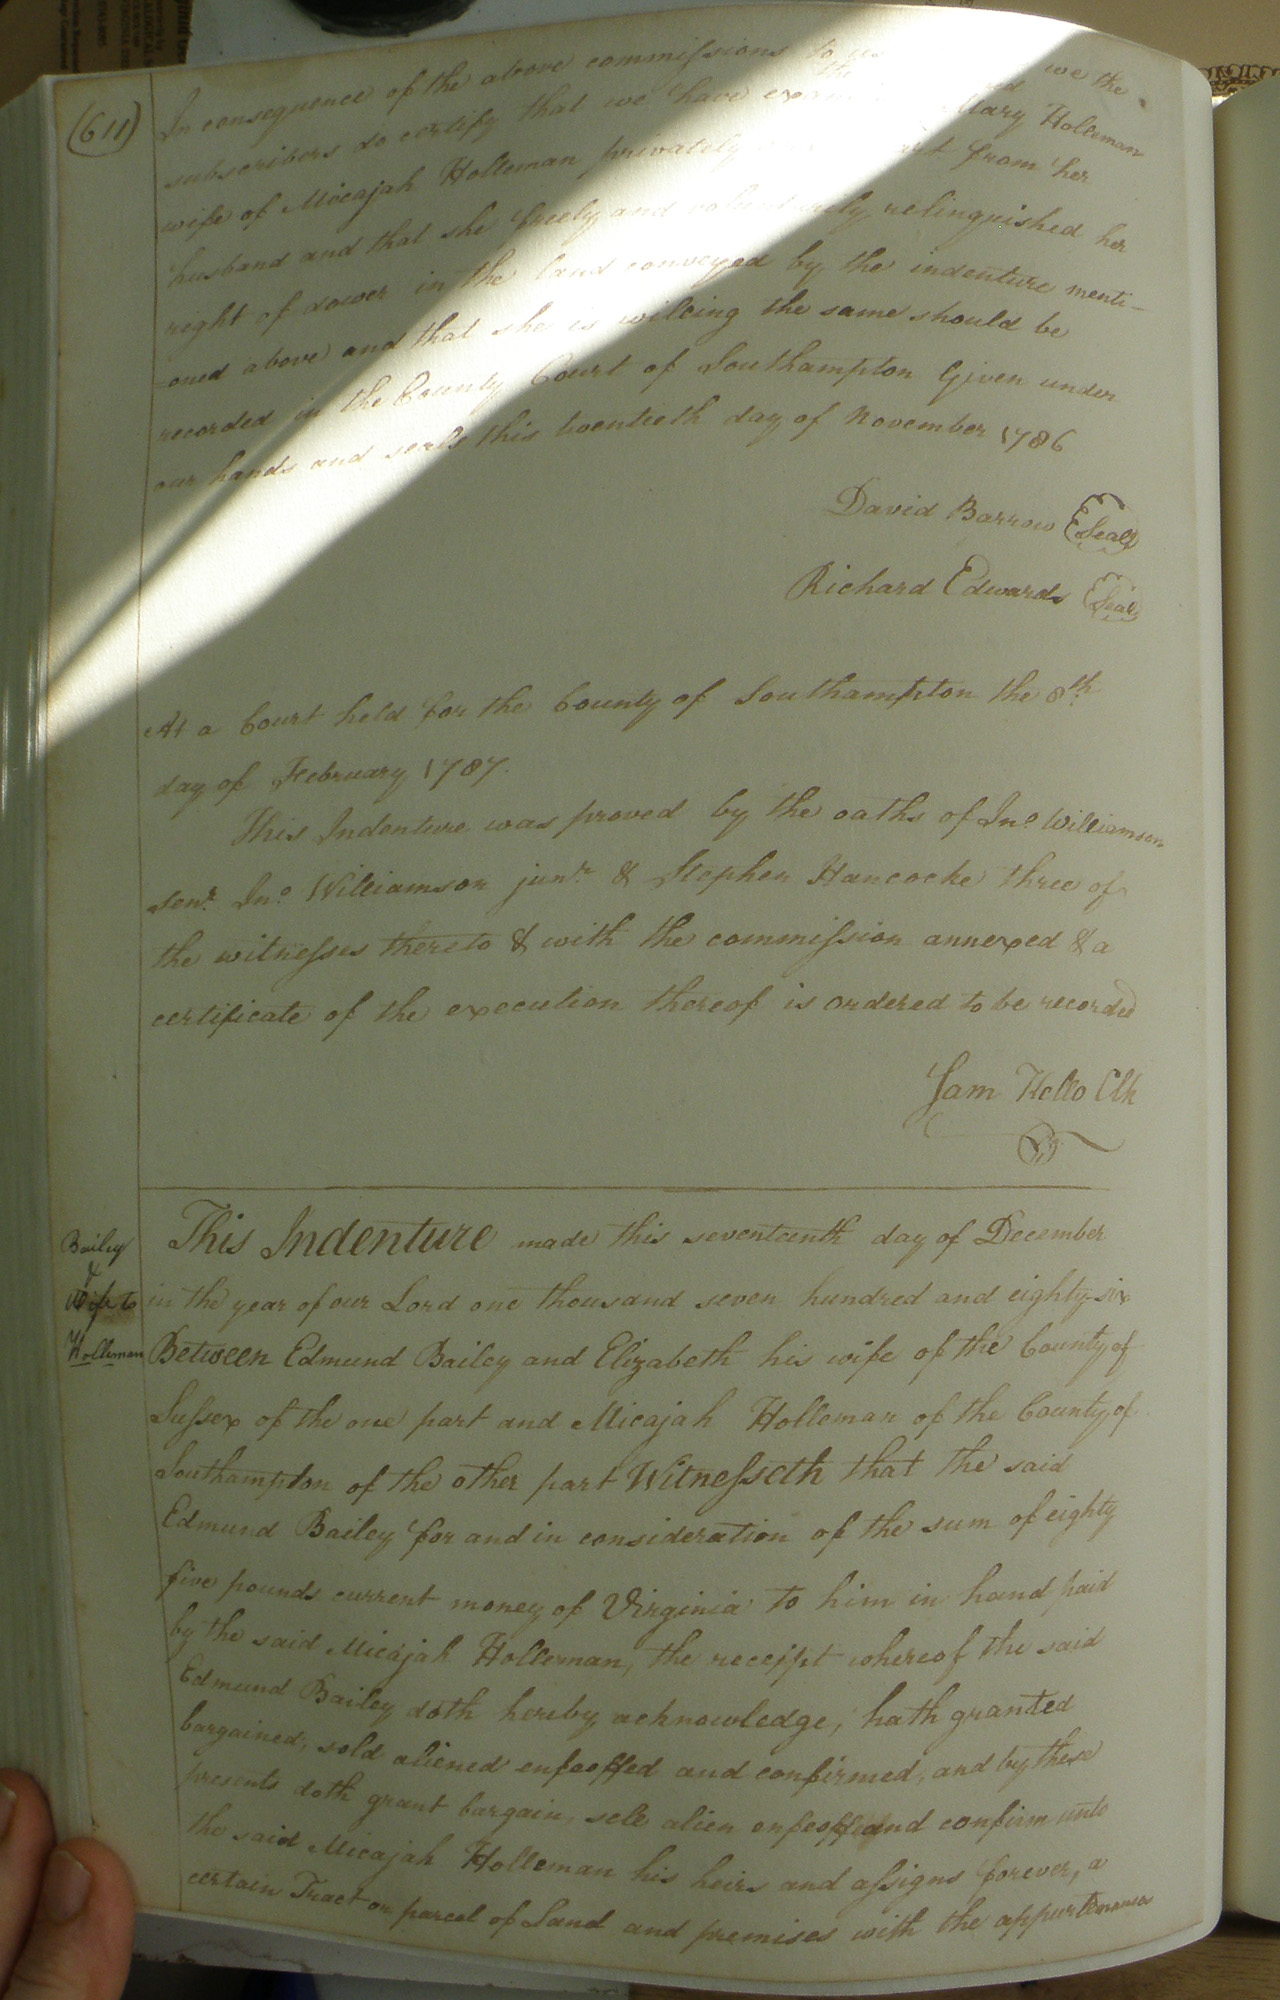 (611)
In consequence of the above commissions to us we the
subscribers do certify that we have Mary Holleman
wife of Micajah Holleman privately from her
husband and that she freely and voluntarily relinquished her
right of dower in the land conveyed by the indenture menti-
-oned above and that she is willing the same should be
recorded in the County Court of Southampton Given under
our hands and seals this twentieth day of November 1786
David Barrow Seal
Richard Edwards Seal
At a Court held for the County of Southampton the 8th
day of February 1787.
This Indenture was proved by the oaths of Jno Williamson
senr. Jno Williamson junr & Stephen Hancocke three of
the witnesses thereto & with the commission annexed & a
certificate of the execution thereof is ordered to be recorded
Sam Kello Clk
Bailey
&
Wife to
Holleman
This Indenture made this seventeenth day of December
in the year of our Lord one thousand seven hundred and eighty-six
Between Edmund Bailey and Elizabeth his wife of the County of
Sussex of the one part and Micajah Holleman of the County of
Southampton of the other part Witnesseth that the said
Edmund Bailey for and in consideration of the sum of eighty
five pounds current money of Virginia to him in hand paid
by the said Micajah Holleman, the receipt whereof the said
Edmund Bailey doth hereby acknowledge, hath granted
bargained, sold aliened enfeoffed and confirmed, and by these
presents doth grant bargain, sell alien enfeoff and confirm unto
the said Micajah Holleman his heirs and assigns forever, a
certain Tract or parcel of Land and premises with the appurtenances